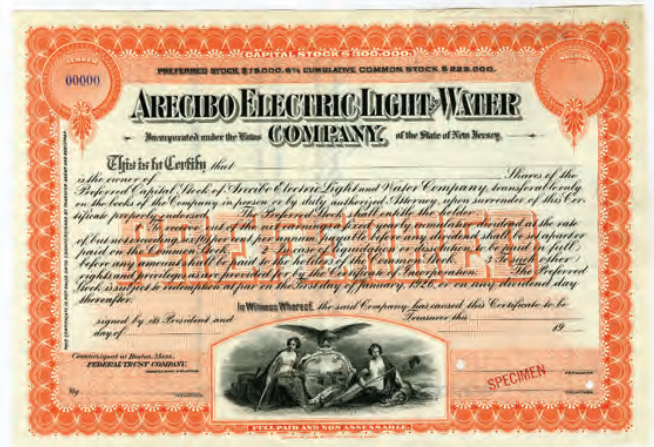 NUMBER
SHARES
CAPITAL STOCK $300,000.
PREFERRED STOCK $75,000. 6% CUMULATIVE COMMON STOCK $225,000.
00000
ARECIBO ELECTRIC LIGHT AND WATER
Incorporated under the Laws COMPANY, of the State of New Jersey.
This is to Certify that
is the owner of Shares of the
Preferred Capital Stock of Arecibo Electric Light and Water Company, transferable only
on the books of the Company in person or by duly authorized Attorney, upon surrender of this Cer-
tificate properly endorsed. The Preferred Stock shall entitle the holder
to receive, out of the net earnings, a fixed yearly cumulative dividend at the rate
of but not exceeding, six (6) per cent per annum, payable before any dividend shall be set apart or
paid on the Common Stock. In case of liquidation or dissolution to be paid in full
before any amount shall be paid to the holders of the Common Stock. To such other
rights and privileges as are provided for by the Certificate of Incorporation. The Preferred
Stock is subject to redemption at par on the first day of January, 1926, or on any dividend day
thereafter.
PREFERRED
In Witness Whereof, the said Company has caused this Certificate to be
signed by its President and Treasurer this
day of 19
Countersigned at Boston, Mass.
FEDERAL TRUST COMPANY,
By
SPECIMEN
FULL PAID AND NON ASSESSABLE
THIS CERTIFICATE IS NOT VALID UNTIL COUNTERSIGNED BY TRANSFER AGENT AND REGISTRAR